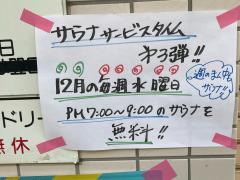 サウナサービスタイム
第3弾!!
12月の毎週水曜日
週のまん中
サウナ!!
PM7:00〜9:00のサウナを
無料!!
日
ドリー
無休